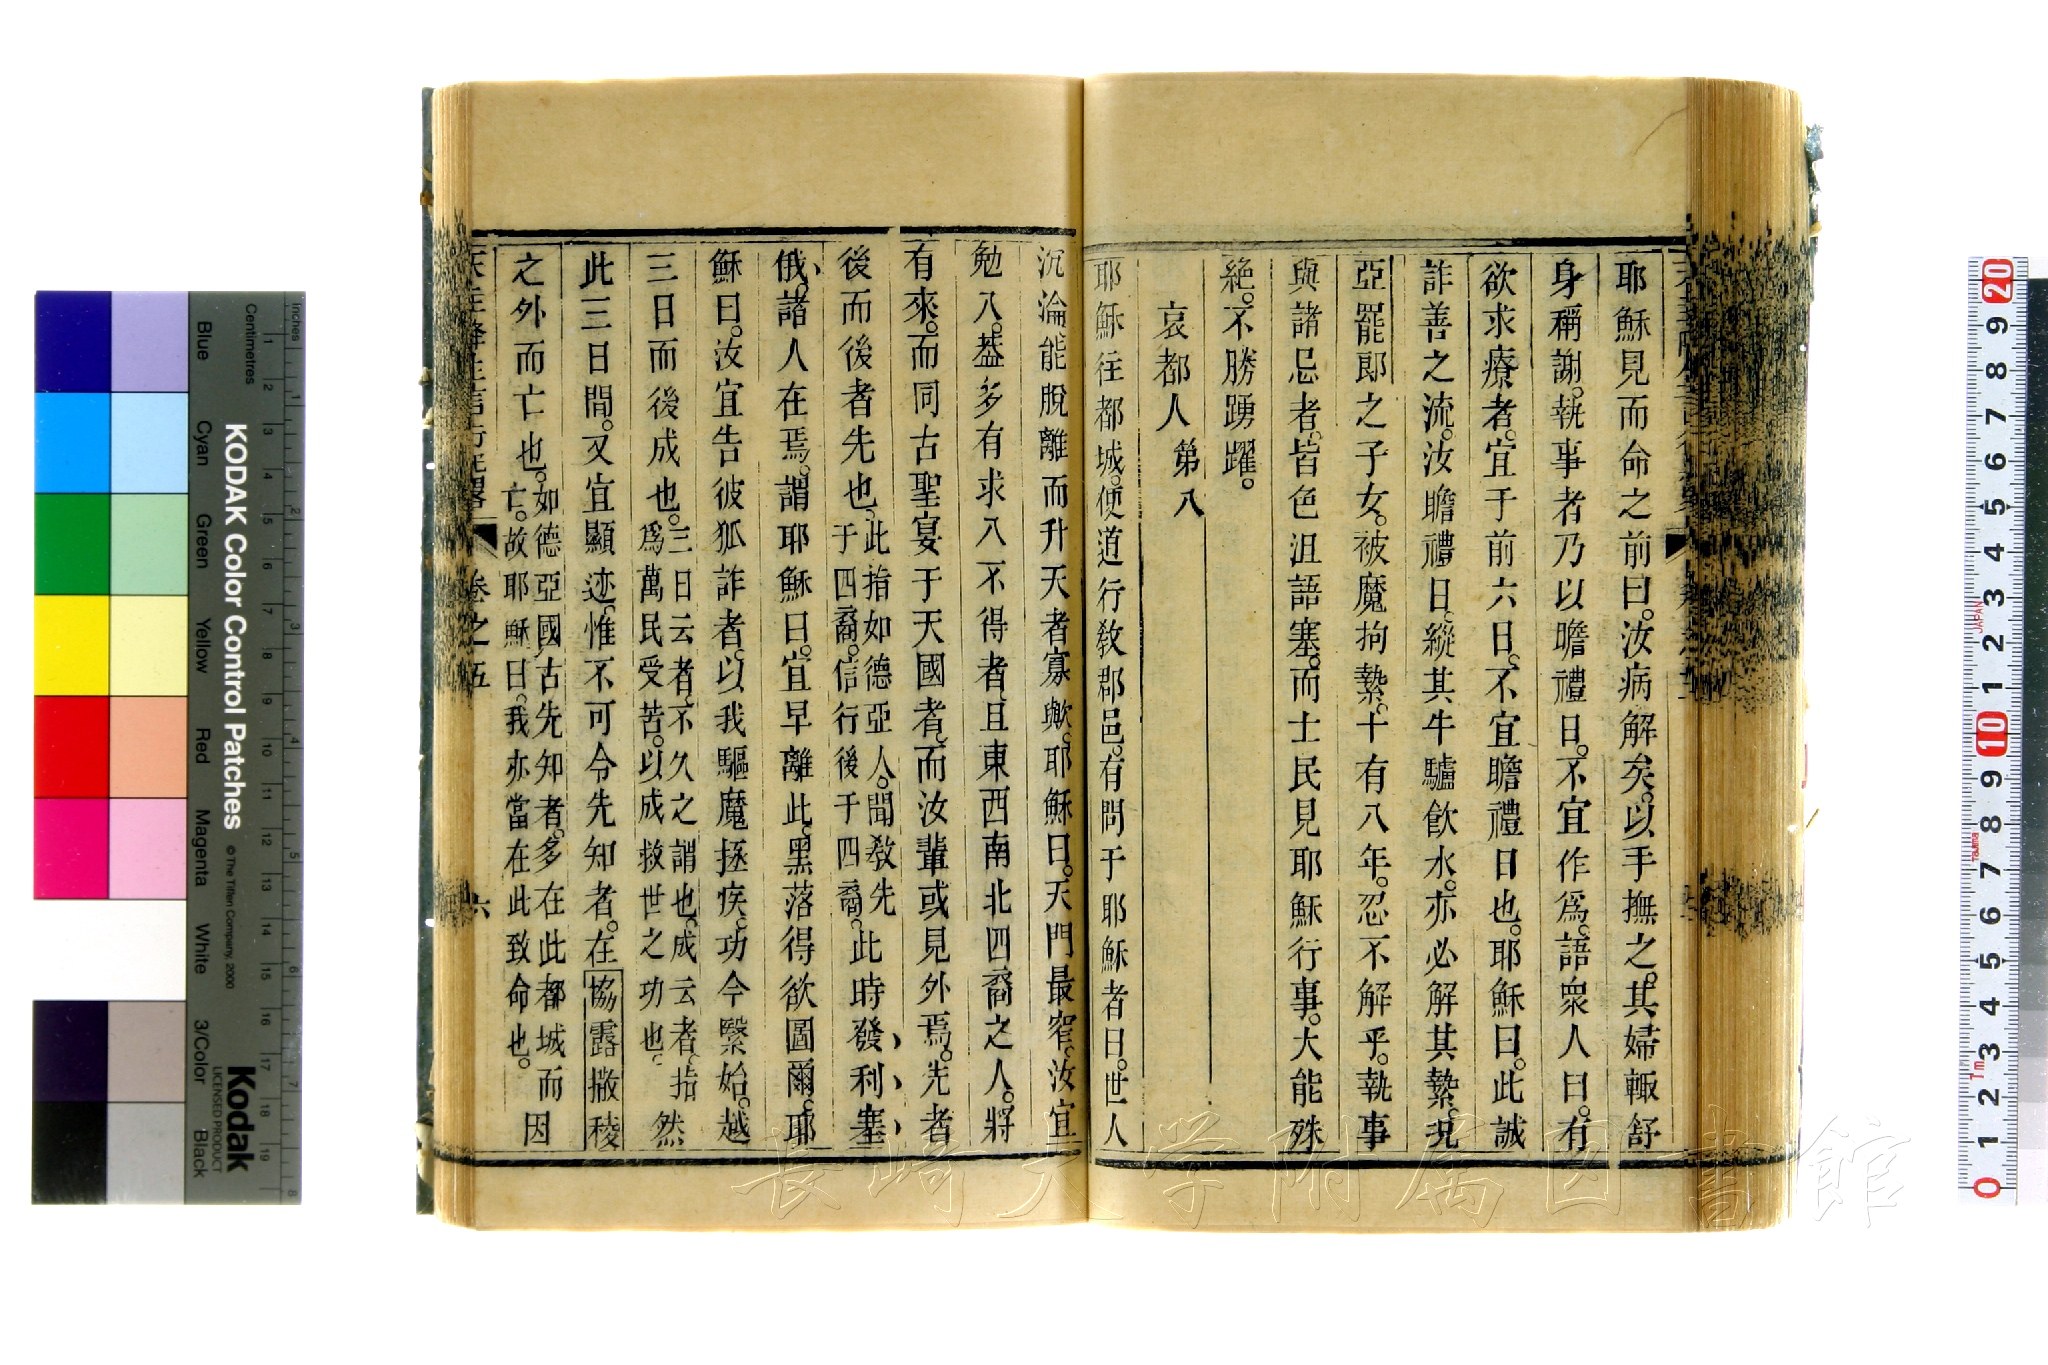 耶穌見而命之前曰。汝病解矣。以手撫之。其婦輙舒
身稱謝。執事者乃以瞻禮日。不宜作爲。語衆人曰。有
欲求療者。宜于前六日。不宜瞻禮日也。耶穌曰。此誠
詐善之流。汝瞻禮日。縱其牛驢飮水。亦必解其縶。况
亞罷郎之子女。被魔拘縶。十有八年。忍不解乎。執事
與諸忌者。皆色沮語塞。而士民見耶穌行事。大能殊
絶。不勝踴躍。
哀都人 第八
耶穌往都城。便道行敎郡邑。有問于耶穌者曰。世人
沉淪。能脫離而升天者寡歟。耶穌曰。天門最窄。汝宜
勉入。葢多有求入不得者。且東西南北四裔之人。將
有來。而同古聖宴于天國者。而汝輩或見外焉。先者
後而後者先也。此指如德亞人。聞敎先
于四裔。信行後于四裔。
此時發利塞
俄、諸人在焉。謂耶穌曰。宜早離此。黑落得欲圖爾。耶
穌曰。汝宜告彼狐詐者。以我驅魔拯疾。功今緊始。越
三日而後成也。三日云者。不久之謂也。成云者。指
爲萬民受苦。以成救世之功也。
然
此三日間。又宜顯迹。惟不可令先知者。在協露撒稜
之外而亡也。如德亞國。古先知者。多在此都城而
亡。故耶穌曰。我亦當在此致命也。
因
天主降生言行紀畧 卷之五 六
長崎大学附属図書館
KODAK Color Control Patches
© The Tiffen Company, 2000
Kodak
LICENSED PRODUCT
Inches
Centimetres
Blue
Cyan
Green
Yellow
Red
Magenta
White
3/Color
Black
JAPAN